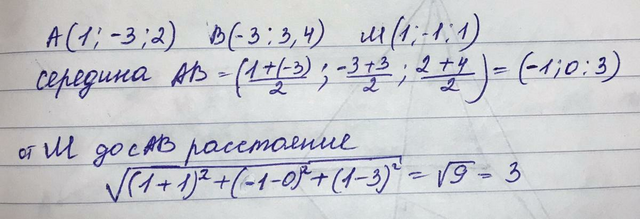 A(1; -3; 2) B(-3; 3, 4) M(1; -1; 1)
середина AB = (1+(-3)/2; -3+3/2; 2+4/2) = (-1; 0; 3)
от M до cAB расстояние
√(1+1)²+(-1-0)²+(1-3)² = √9 = 3